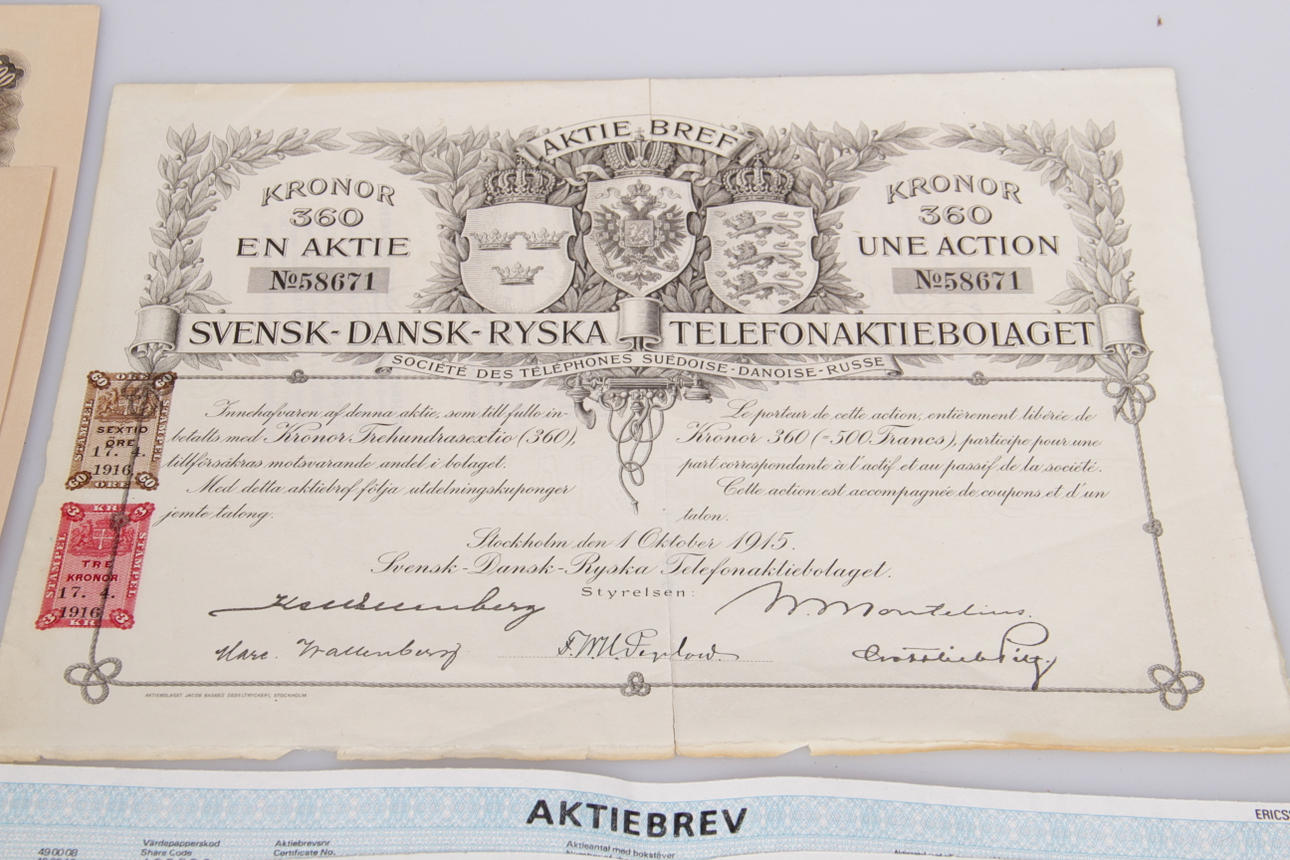 AKTIE BREF
KRONOR
360
EN AKTIE
No58671
KRONOR
360
UNE ACTION
No58671
SVENSK-DANSK-RYSKA TELEFONAKTIEBOLAGET
SOCIÉTÉ DES TÉLÉPHONES SUÉDOISE-DANOISE-RUSSE
60 ÖRE 60
STÄMPEL STÄMPEL
SEXTIO
ÖRE
17. 4.
1916
60 ÖRE 60
3 KR 3
STÄMPEL STÄMPEL
TRE
KRONOR
17. 4.
1916
3 KR 3
Innehafvaren af denna aktie, som till fullo in-
betalts med Kronor Trehundrasextio (360),
tillförsäkras motsvarande andel i bolaget.
Med detta aktiebref följa utdelningskuponger
jemte talong.
Le porteur de cette action, entièrement libérée de
Kronor 360 (=500 Francs), participe pour une
part correspondante à l'actif et au passif de la société.
Cette action est accompagnée de coupons et d'un
talon.
Stockholm den 1 Oktober 1915.
Svensk-Dansk-Ryska Telefonaktiebolaget.
Styrelsen:
Marc. Wallenberg
AKTIEBOLAGET JACOB BAGGES SEDELTRYCKERI, STOCKHOLM
AKTIEBREV
ERICS
49 00 08
Värdepapperskod
Share Code
Aktiebrevsnr
Certificate No.
Aktieantal med bokstäver